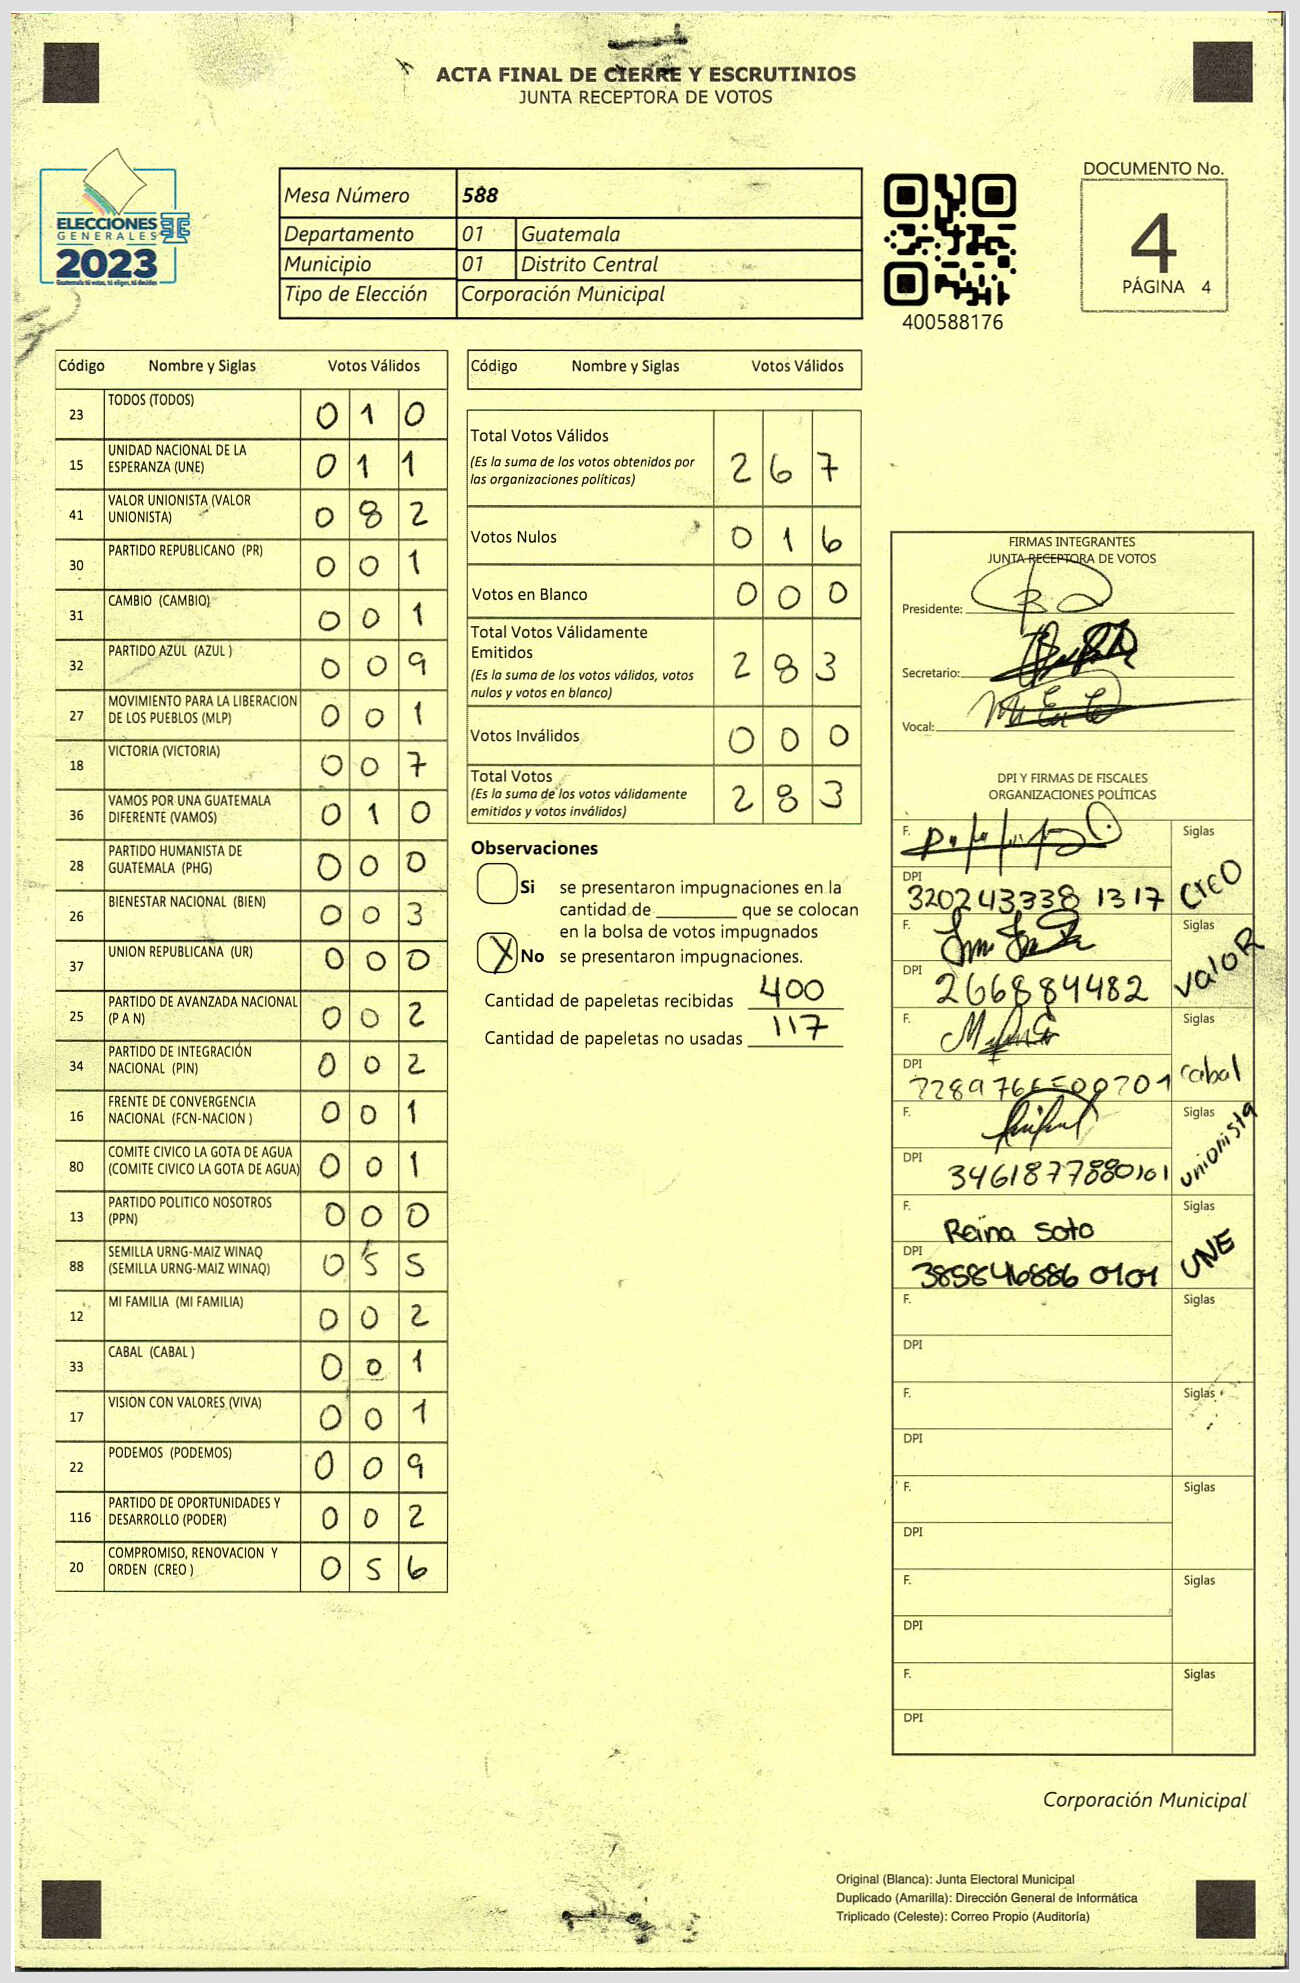 ACTA FINAL DE CIERRE Y ESCRUTINIOS
JUNTA RECEPTORA DE VOTOS
ELECCIONES
GENERALES
2023
Guatemala tú votas, tú eliges, tú decides
Mesa Número 588
Departamento 01 Guatemala
Municipio 01 Distrito Central
Tipo de Elección Corporación Municipal
400588176
DOCUMENTO No.
4
PÁGINA 4
Código Nombre y Siglas Votos Válidos
23 TODOS (TODOS) 0 1 0
15 UNIDAD NACIONAL DE LA ESPERANZA (UNE) 0 1 1
41 VALOR UNIONISTA (VALOR UNIONISTA) 0 8 2
30 PARTIDO REPUBLICANO (PR) 0 0 1
31 CAMBIO (CAMBIO) 0 0 1
32 PARTIDO AZUL (AZUL ) 0 0 9
27 MOVIMIENTO PARA LA LIBERACION DE LOS PUEBLOS (MLP) 0 0 1
18 VICTORIA (VICTORIA) 0 0 7
36 VAMOS POR UNA GUATEMALA DIFERENTE (VAMOS) 0 1 0
28 PARTIDO HUMANISTA DE GUATEMALA (PHG) 0 0 0
26 BIENESTAR NACIONAL (BIEN) 0 0 3
37 UNION REPUBLICANA (UR) 0 0 0
25 PARTIDO DE AVANZADA NACIONAL (P A N) 0 0 2
34 PARTIDO DE INTEGRACIÓN NACIONAL (PIN) 0 0 2
16 FRENTE DE CONVERGENCIA NACIONAL (FCN-NACION ) 0 0 1
80 COMITE CIVICO LA GOTA DE AGUA (COMITE CIVICO LA GOTA DE AGUA) 0 0 1
13 PARTIDO POLITICO NOSOTROS (PPN) 0 0 0
88 SEMILLA URNG-MAIZ WINAQ (SEMILLA URNG-MAIZ WINAQ) 0 5 5
12 MI FAMILIA (MI FAMILIA) 0 0 2
33 CABAL (CABAL ) 0 0 1
17 VISION CON VALORES (VIVA) 0 0 1
22 PODEMOS (PODEMOS) 0 0 9
116 PARTIDO DE OPORTUNIDADES Y DESARROLLO (PODER) 0 0 2
20 COMPROMISO, RENOVACION Y ORDEN (CREO ) 0 5 6
Código Nombre y Siglas Votos Válidos
Total Votos Válidos 2 6 7
(Es la suma de los votos obtenidos por
las organizaciones políticas)
Votos Nulos 0 1 6
Votos en Blanco 0 0 0
Total Votos Válidamente
Emitidos 2 8 3
(Es la suma de los votos válidos, votos
nulos y votos en blanco)
Votos Inválidos 0 0 0
Total Votos 2 8 3
(Es la suma de los votos válidamente
emitidos y votos inválidos)
Observaciones
Si se presentaron impugnaciones en la
cantidad de ________ que se colocan
en la bolsa de votos impugnados
X No se presentaron impugnaciones.
Cantidad de papeletas recibidas 400
Cantidad de papeletas no usadas 117
FIRMAS INTEGRANTES
JUNTA RECEPTORA DE VOTOS
Presidente:
Secretario:
Vocal:
DPI Y FIRMAS DE FISCALES
ORGANIZACIONES POLÍTICAS
F. Siglas
DPI 320243338 1317 CREO
F. Siglas
DPI 266884482 VALOR
F. Siglas
DPI cabal
F. Siglas
DPI 3461877880101 unionista
F. Reina Soto Siglas
DPI 3858468860101 UNE
F. Siglas
DPI
F. Siglas
DPI
F. Siglas
DPI
F. Siglas
DPI
F. Siglas
DPI
Corporación Municipal
Original (Blanca): Junta Electoral Municipal
Duplicado (Amarilla): Dirección General de Informática
Triplicado (Celeste): Correo Propio (Auditoría)